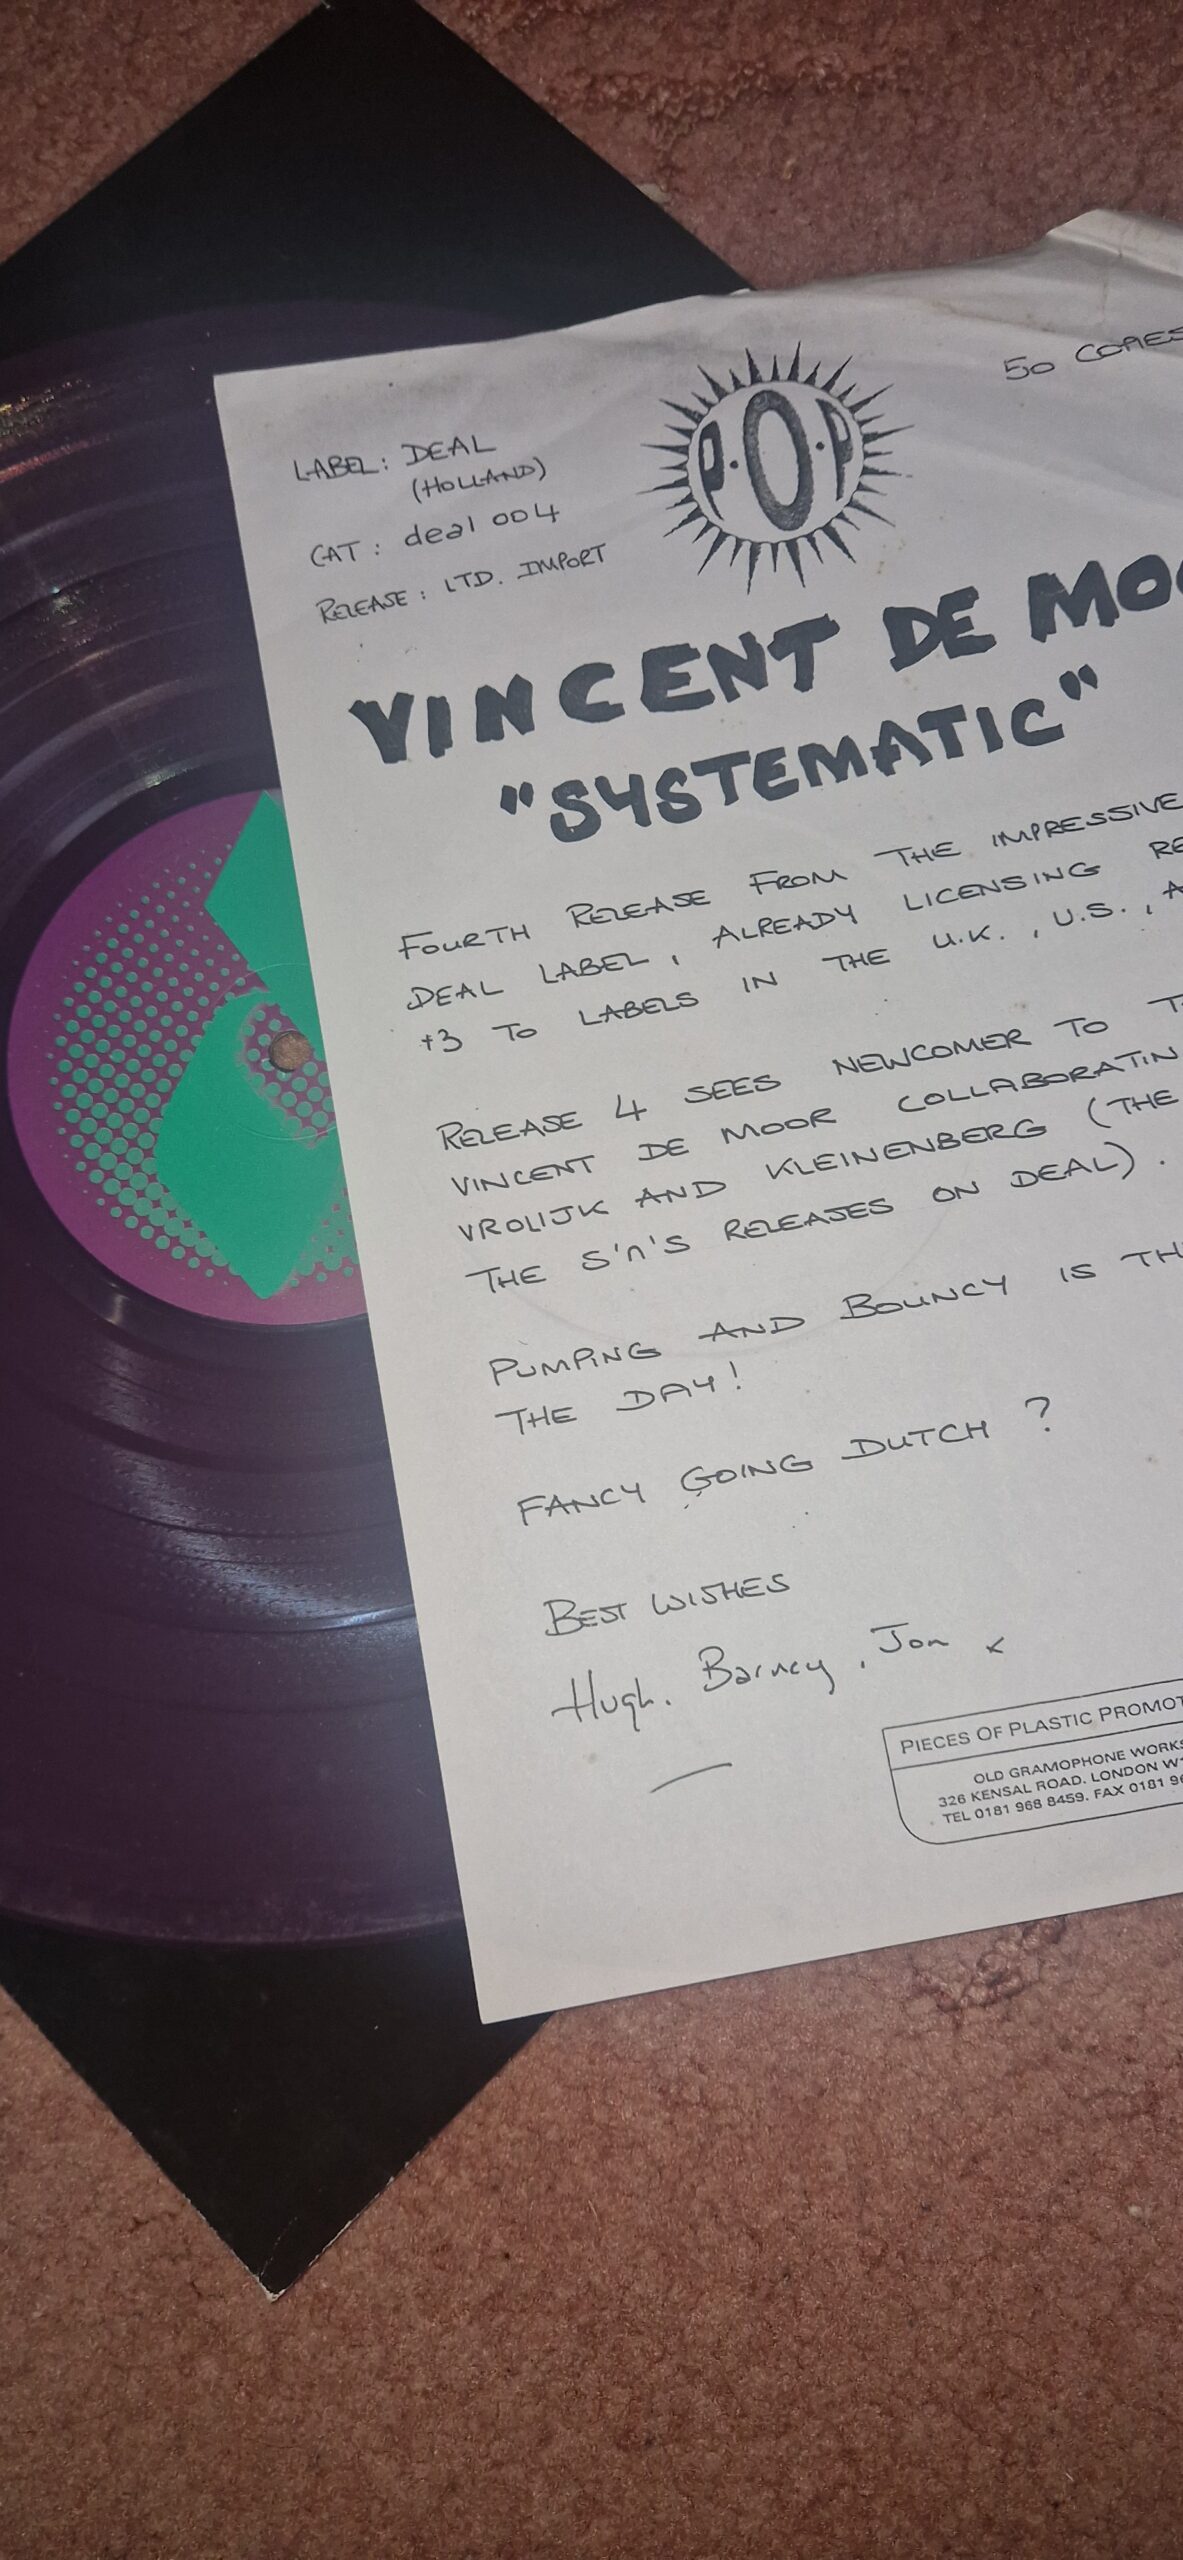 50 COPIES
P.O.P
LABEL: DEAL
(HOLLAND)
CAT: deal 004
RELEASE: LTD. IMPORT
VINCENT DE MOO
"SYSTEMATIC"
FOURTH RELEASE FROM THE IMPRESSIVE
DEAL LABEL, ALREADY LICENSING RE
+3 TO LABELS IN THE U.K., U.S., A
RELEASE 4 SEES NEWCOMER TO T
VINCENT DE MOOR COLLABORATIN
VROLIJK AND KLEINENBERG (THE
THE S'n'S RELEASES ON DEAL).
PUMPING AND BOUNCY IS TH
THE DAY!
FANCY GOING DUTCH?
BEST WISHES
Hugh. Barney, Jon x
PIECES OF PLASTIC PROMOT
OLD GRAMOPHONE WORKS
326 KENSAL ROAD. LONDON W1
TEL 0181 968 8459. FAX 0181 96